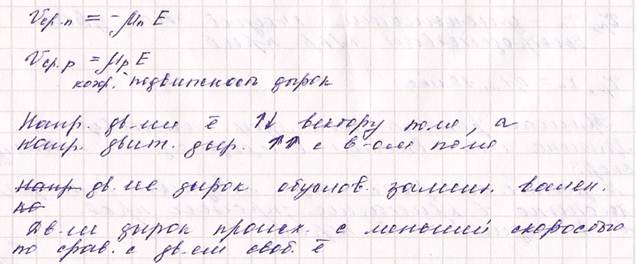 Vср.n = -μn E
Vср.p = μp E
коэф. подвижности дырок
Напр. дв-ия ē ↑↓ вектору поля, а
напр. движ. дыр. ↑↑ с в-ом поля
Напр дв-ие дырок обуслов. замещ. вален.
Дв-ия дырок происх. с меньшей скоростью
по срав. с дв-ем своб. ē